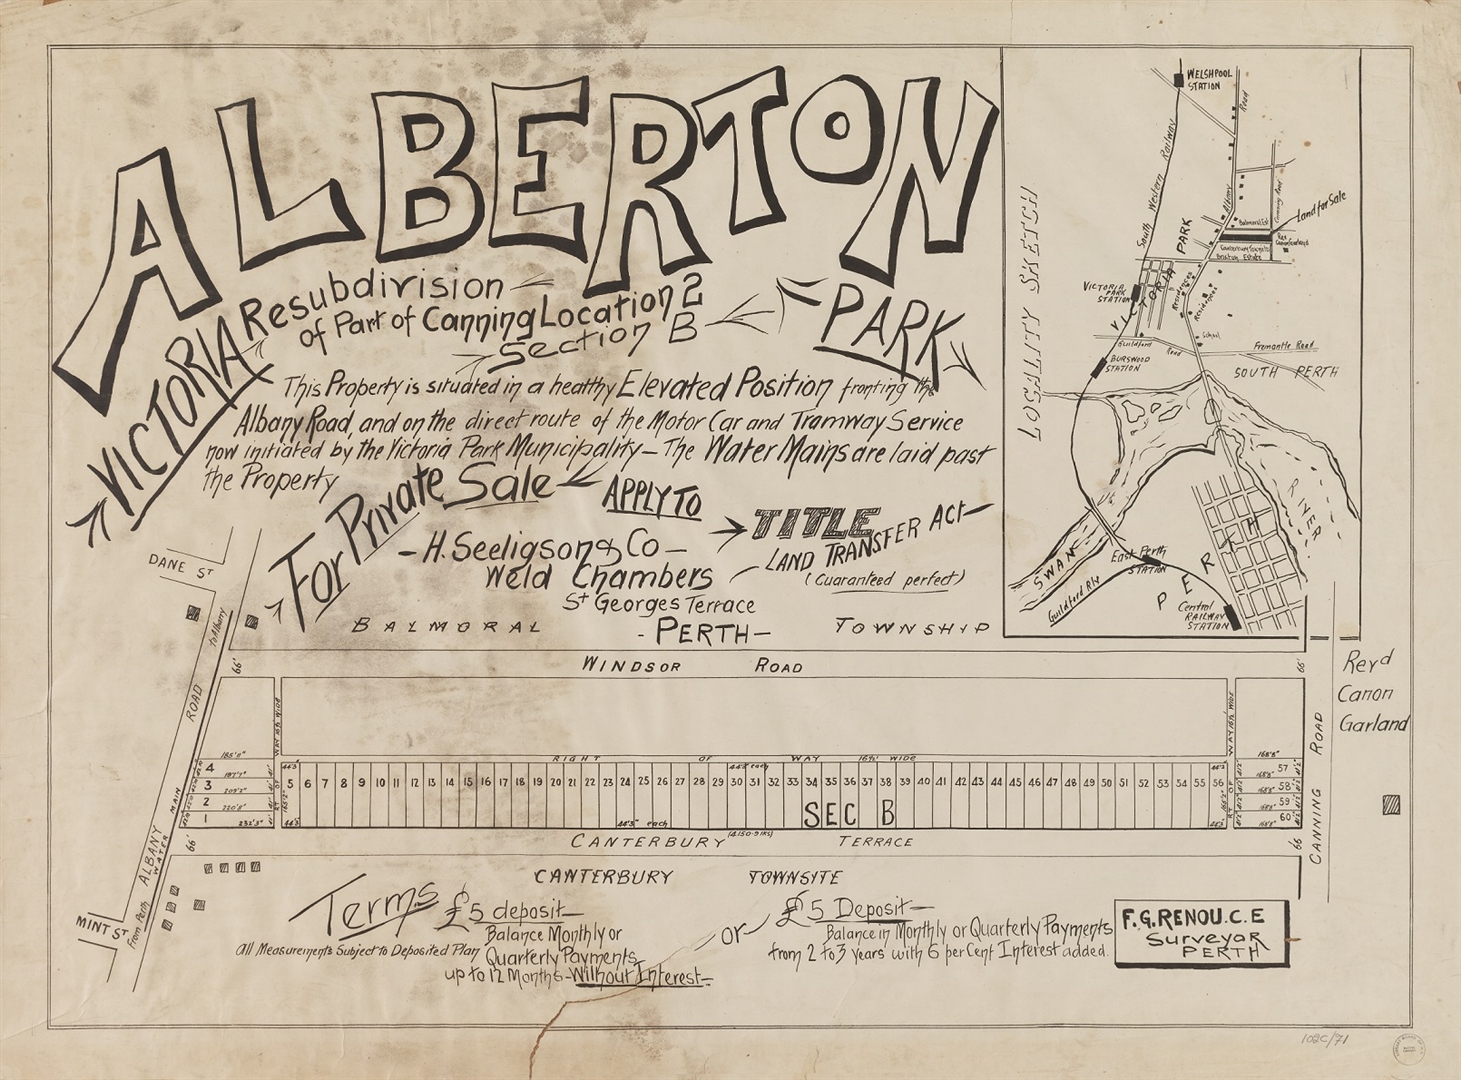 ALBERTON
VICTORIA PARK
Resubdivision
of Part of Canning Location 2
Section B
This Property is situated in a healthy Elevated Position fronting the
Albany Road, and on the direct route of the Motor Car and Tramway Service
now initiated by the Victoria Park Municipality — The Water Mains are laid past
the Property
For Private Sale
APPLY TO
— H. Seeligson & Co —
Weld Chambers
St Georges Terrace
- PERTH -
TITLE
LAND TRANSFER ACT —
(Guaranteed perfect)
LOCALITY SKETCH
WELSHPOOL
STATION
South Western Railway
Albany Road
Canning Road
Land for Sale
Balmoral Est.
Rev
Canon Garland
VICTORIA PARK
VICTORIA
PARK
STATION
Residences
Residences
School
Guildford Road
BURSWOOD
STATION
Fremantle Road
SOUTH PERTH
SWAN RIVER
PERTH
East Perth
STATION
Guildford Rle
Central
RAILWAY
STATION
DANE ST
BALMORAL TOWNSHIP
66'
WINDSOR ROAD
66'
Revd
Canon
Garland
to Albany
ALBANY ROAD
WATER MAIN
From Perth
MINT ST
WAY 16½' WIDE
RT OF
WAY 16½' WIDE
RT OF
RIGHT OF WAY 16½' WIDE
185'11"
4
197'7"
3
209'2"
2
220'8"
1
232'3"
44'3" 5 6 7 8 9 10 11 12 13 14 15 16 17 18 19 20 21 22 23 24 25 26 27 28 29 30 31 32 33 34 35 36 37 38 39 40 41 42 43 44 45 46 47 48 49 50 51 52 53 54 55 56
44'3" each
44'3" each
165'2"
165'2"
SEC B
57
58
59
60
CANTERBURY TERRACE
66'
66'
CANNING ROAD
CANTERBURY TOWNSITE
Terms
£5 deposit —
Balance Monthly or
Quarterly Payments
up to 12 Months — Without Interest —
All Measurements Subject to Deposited Plan
— or —
£5 Deposit —
Balance in Monthly or Quarterly Payments
from 2 to 3 years with 6 per Cent Interest added.
F. G. RENOU. C. E
Surveyor
PERTH
102C/71